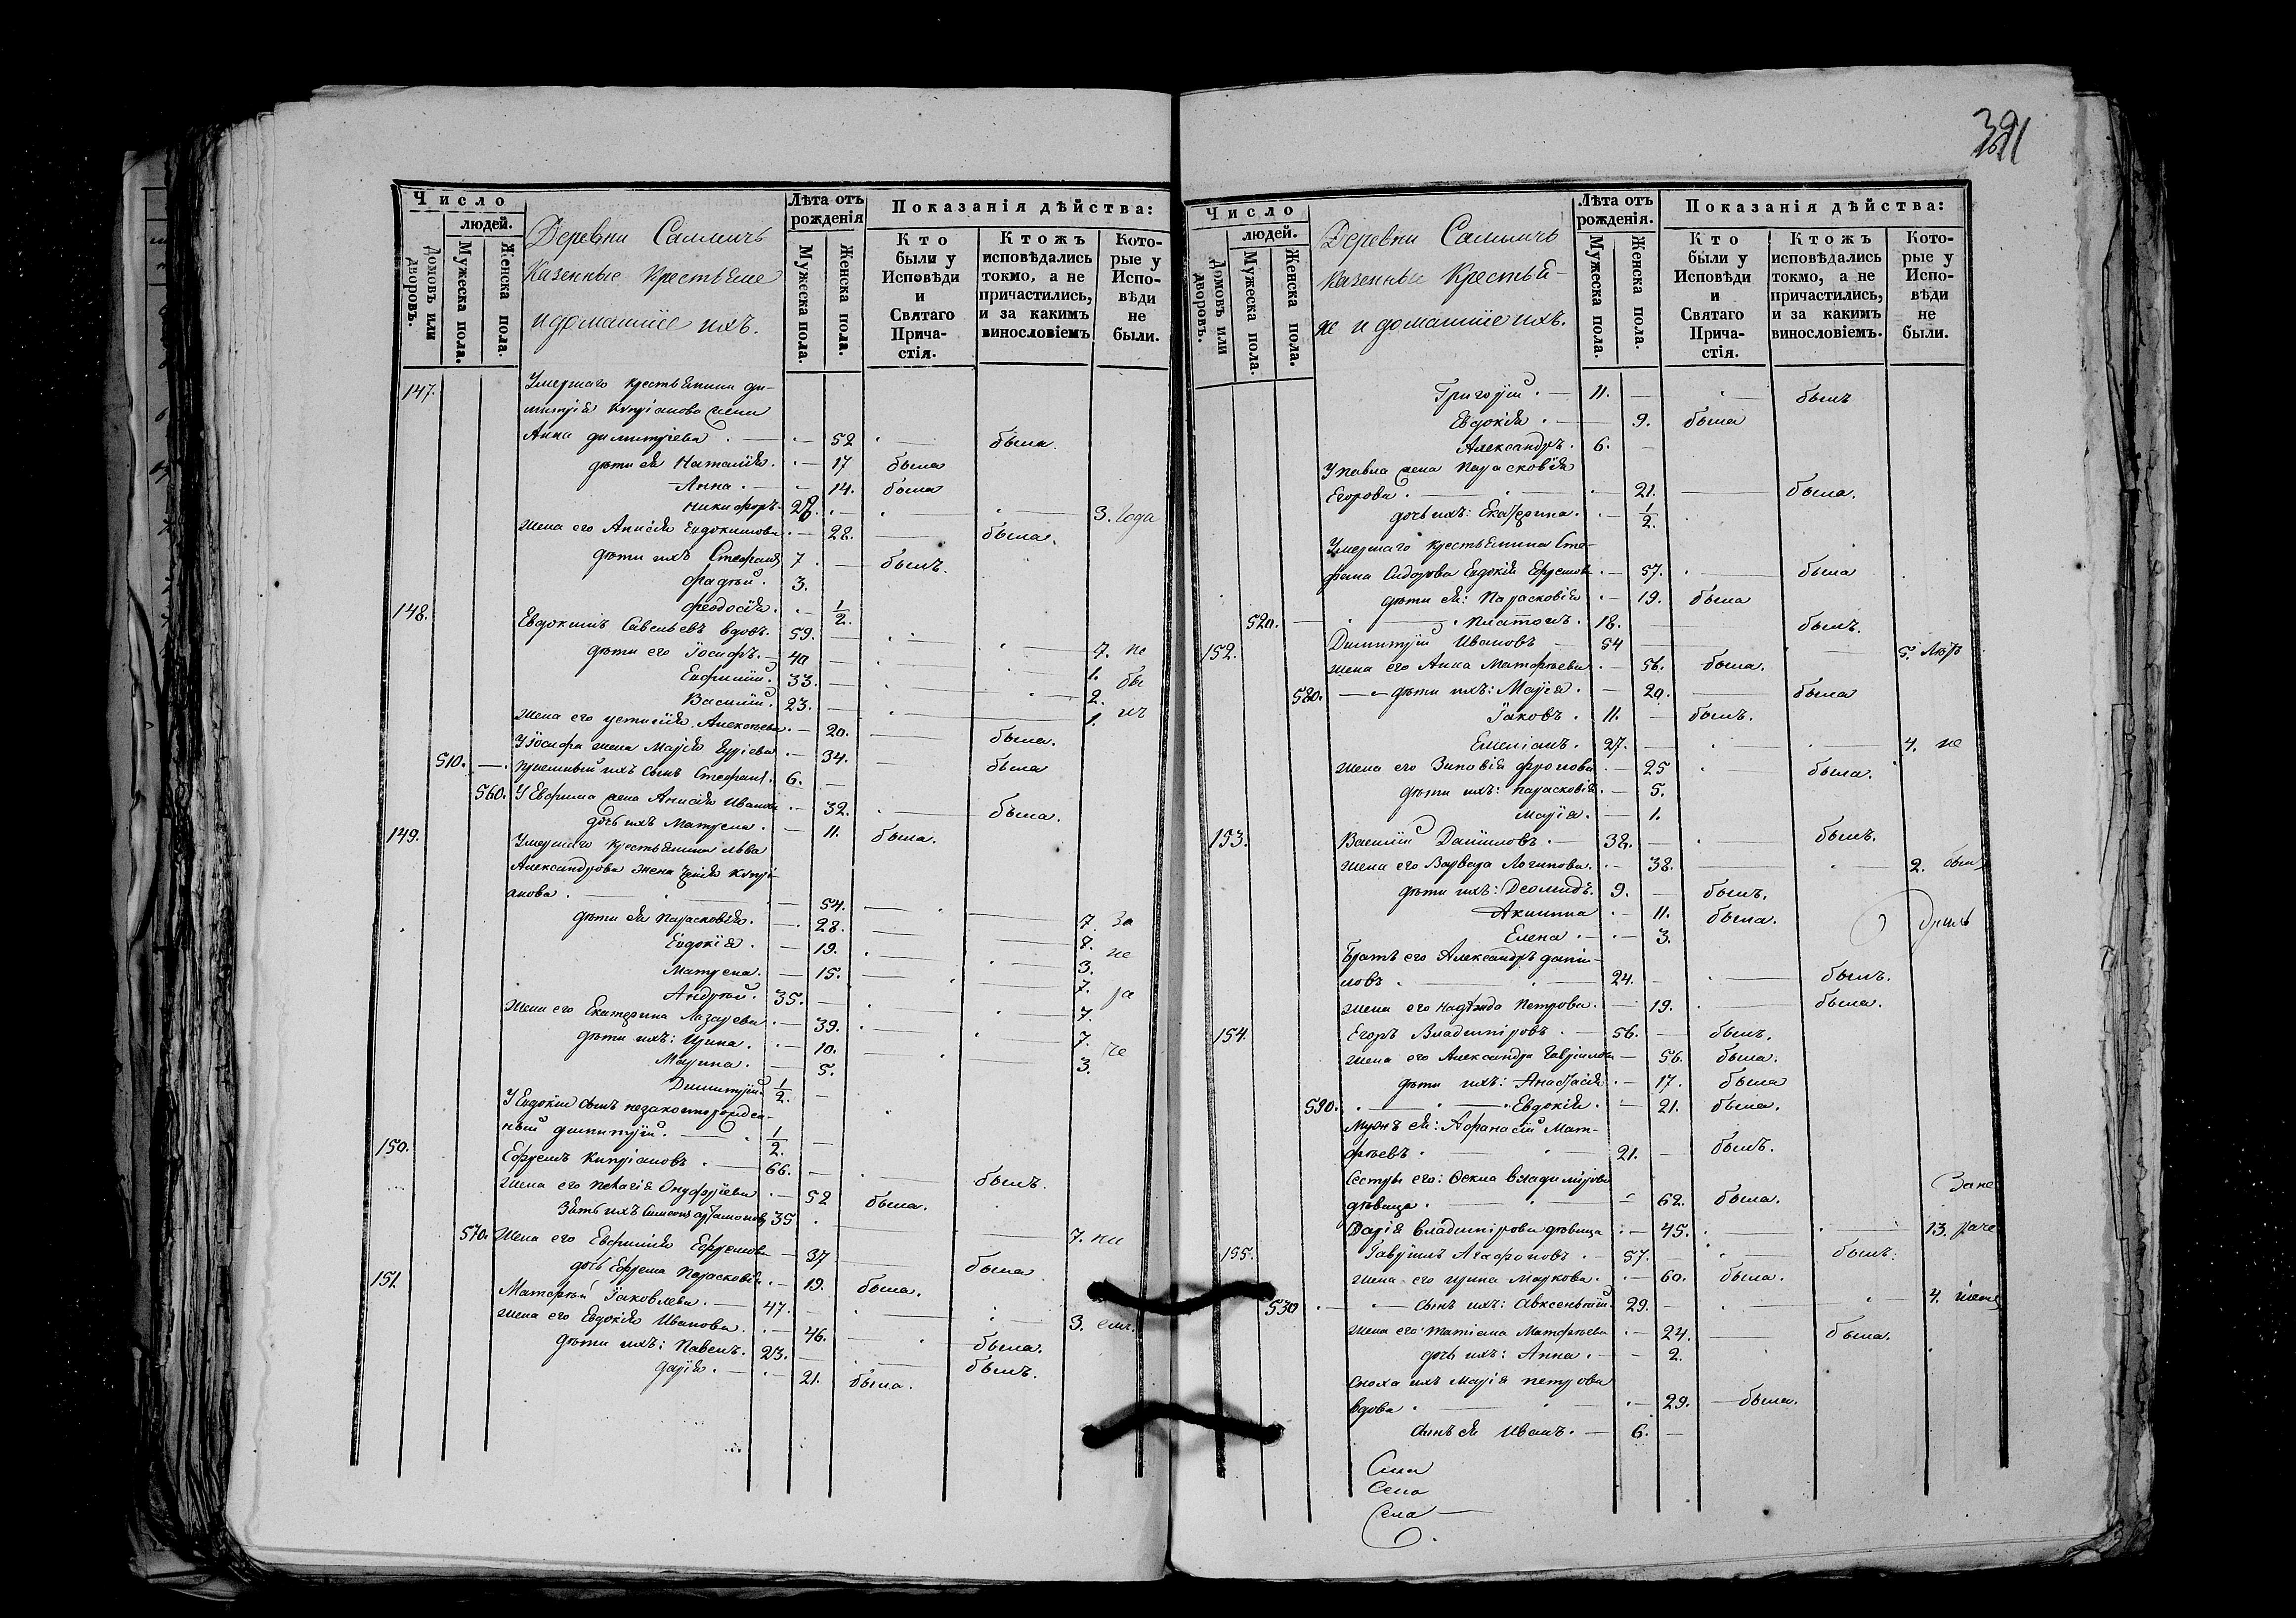 391
Число
людей.
Домовъ или дворовъ.
Мужеска пола.
Женска пола.
Деревни
Казенные Крестьяне
и домашніе ихъ.
Лѣта отъ рожденія
Мужеска пола.
Женска пола.
Показанія дѣйства:
Кто были у Исповѣди и Святаго Причастія.
Ктожъ исповѣдались токмо, а не причастились, и за какимъ винословіемъ
Которые у Исповѣди не были.
147. Умершаго крестьянина Ди-
митрія Кипріанова жена
Анна Димитріева . — 52 была.
дѣти ея Наталія. — 17 была
Анна . — 14. была
Никифоръ. 3. года
жена его Анисія Евдокимова — 28. была.
дѣти ихъ Стефанъ 7. — былъ.
Фадѣй. 3.
Феодосія. — 1/2.
148. Евдокимъ Савельевъ вдовъ. 59. — 7. не
дѣти его Іосифъ. 40 — 1.
Евфимій. 33. — 2. бы
Василій. 23. — 1. лъ
жена его Устинія Алексѣева — 20. была.
У Іосифа жена Марія Гуріева — 34. была
510. — Пріемный ихъ сынъ Стефанъ. 6. —
560. У Евфима жена Анисія Иванова — 32. была.
дочь ихъ Матрена. — 11. была.
149. Умершаго крестьянина Льва
Александрова жена Кипрі-
анова . — 54.
дѣти ея Парасковія. — 28. 7. За
Евдокія. — 19. не
Матрена. — 15. 3.
Андрей. 35. — 7. ра
жена его Екатерина Лазарева — 39. 7.
дѣти ихъ: Ирина. — 10. 7. че
Марина. — 5. 3.
Димитрій. 1/2. —
У Евдокіи сынъ незаконнорожден-
ный Димитрій. 1/2. —
150. Ефремъ Кипріановъ . 66. — былъ.
жена его Пелагія Онуфріева — 52 была.
Зять ихъ Симеонъ Артамоновъ 35 7.
570. жена его Евфимія Ефремова — 37 была
дочь Ефрема Парасковія — 19. была.
151. Матфей Іаковлевъ. — 47. — 3.
жена его Евдокія Иванова. — 46. была.
дѣти ихъ: Павелъ. 23. — былъ.
Дарія. — 21. была.
Число
людей.
Домовъ или дворовъ.
Мужеска пола.
Женска пола.
Деревни
казенные Крестья-
не и домашніе ихъ.
Лѣта отъ рожденія.
Мужеска пола.
Женска пола.
Показанія дѣйства:
Кто были у Исповѣди и Святаго Причастія.
Ктожъ исповѣдались токмо, а не причастились, и за какимъ винословіемъ.
Которые у Исповѣди не были.
Григорій . — 11. — былъ
Евдокія . — 9. была
Александръ . 6. —
У Павла жена Парасковія
Егорова . — 21. была.
дочь ихъ: Екатерина. — 1/2.
Умершаго крестьянина Сте-
фана Сидорова Евдокія Ефремова — 57. была
дѣти ея: Парасковія — 19. была
520. Платонъ. 18. былъ.
152. Димитрій Ивановъ — 54 5.
жена его Анна Матфѣева — 56. была.
580. — дѣти ихъ: Марія . — 20. была
Іаковъ . 11. — былъ.
Емеліанъ. 27. — 4. не
жена его Зиновія Фролова — 25 была.
дѣти ихъ: Парасковія. — 5.
Марія. — 1.
153. Василій Даниловъ . — 38. — былъ.
жена его Варвара Логинова. — 38. 2.
дѣти ихъ: Деомидъ. 9. — былъ.
Акилина — 11. была.
Елена . — 3.
Братъ его Александръ Дани-
ловъ . 24. — былъ.
жена его Надежда Петрова. — 19. была.
154. Егоръ Владиміровъ . — 56. — былъ.
жена его Александра Гавріилова — 56. была.
дѣти ихъ: Анастасія — 17. была
590. Евдокія. — 21. была.
Мужъ ея: Афанасій Мат-
фѣевъ . 21. — былъ.
Сестры его: Фекла Владимірова
дѣвица . — 62. была. За не
Дарія Владимірова дѣвица — 45. 13. раче
155. Гавріилъ Агафоновъ . — 57. былъ.
жена его Ирина Маркова. — 60. была.
530 — сынъ ихъ: Авксентій. 29. — 4. ніемъ
жена его Татіана Матфѣева — 24. была.
дочь ихъ: Анна . — 2.
сноха ихъ Марія Петрова
вдова . — 29. была.
сынъ ея Иванъ. — 6. —
Села
Села
Села